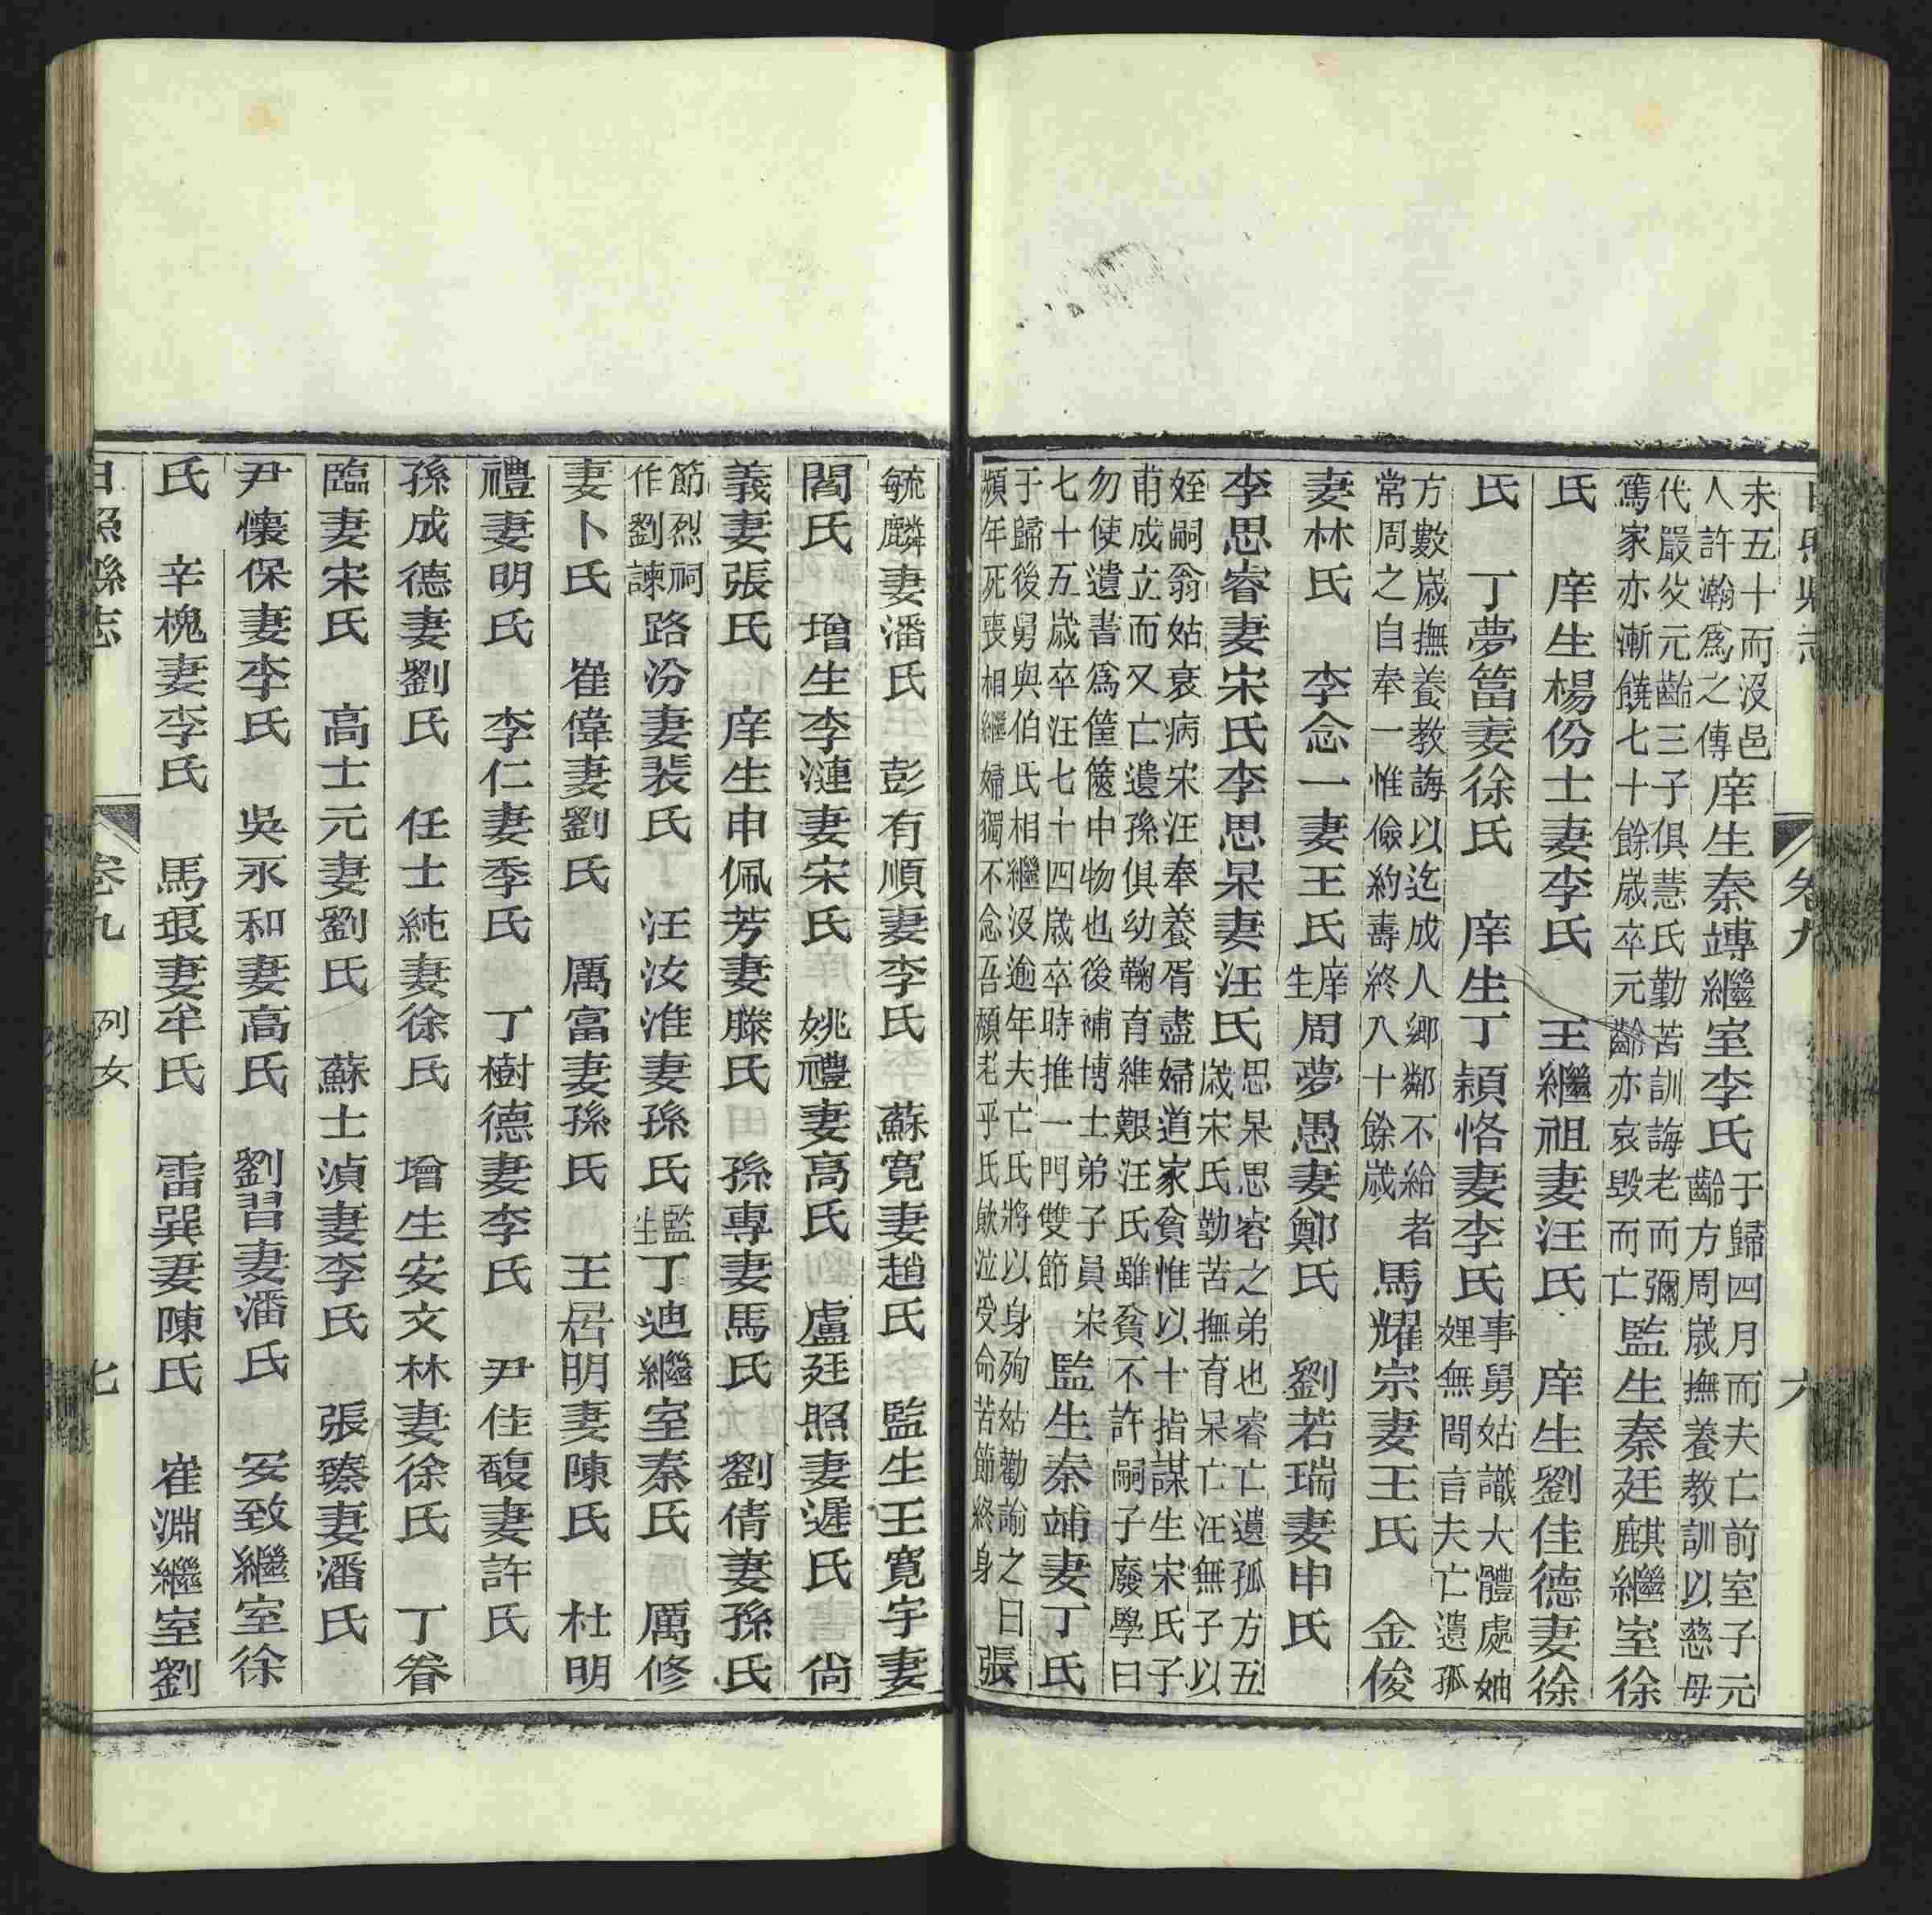 日照縣志 卷九 六
未五十而沒邑
人許瀚為之傳
庠生秦竱繼室李氏
于歸四月而夫亡前室子元
齡方周歲撫養教訓以慈母
代嚴父元齡三子俱慧氏勤苦訓誨老而彌
篤家亦漸饒七十餘歲卒元齡亦哀毀而亡
監生秦廷麒繼室徐
氏 庠生楊份士妻李氏 王繼祖妻汪氏 庠生劉佳德妻徐
氏 丁夢簹妻徐氏 庠生丁穎恪妻李氏
事舅姑識大體處妯
娌無間言夫亡遺孤
方數歲撫養教誨以迄成人鄉鄰不給者
常周之自奉一惟儉約壽終八十餘歲
馬耀宗妻王氏 金俊
妻林氏 李念一妻王氏 庠生周夢愚妻鄭氏 劉若瑞妻申氏
李思睿妻宋氏李思杲妻汪氏
思杲思睿之弟也睿亡遺孤方五
歲宋氏勤苦撫育杲亡汪無子以
姪嗣翁姑衰病宋汪奉養胥盡婦道家貧惟以十指謀生宋氏子
甫成立而又亡遺孫俱幼鞠育維艱汪氏雖貧不許嗣子廢學曰
勿使遺書為筐篋中物也後補博士弟子員宋
七十五歲卒汪七十四歲卒時推一門雙節
監生秦竱妻丁氏
于歸後舅與伯氏相繼沒逾年夫亡氏將以身殉姑勸諭之曰
頻年死喪相繼婦獨不念吾頹老乎氏飲泣受命苦節終身
張
毓麟妻潘氏 彭有順妻李氏 蘇寬妻趙氏 監生王寬宇妻
閻氏 增生李漣妻宋氏 姚禮妻高氏 盧廷照妻遲氏 尚
義妻張氏 庠生申佩芳妻滕氏 孫專妻馬氏 劉倩妻孫氏
節烈祠
作劉諫
路汾妻裴氏 汪汝淮妻孫氏 監生丁迪繼室秦氏 厲修
妻卜氏 崔偉妻劉氏 厲富妻孫氏 王居明妻陳氏 杜明
禮妻明氏 李仁妻季氏 丁樹德妻李氏 尹佳馥妻許氏
孫成德妻劉氏 任士純妻徐氏 增生安文林妻徐氏 丁眷
臨妻宋氏 高士元妻劉氏 蘇士湞妻李氏 張臻妻潘氏
尹懷保妻李氏 吳永和妻高氏 劉習妻潘氏 安致繼室徐
氏 辛槐妻李氏 馬琅妻牟氏 雷巽妻陳氏 崔淵繼室劉
日照縣志 卷九 列女 七